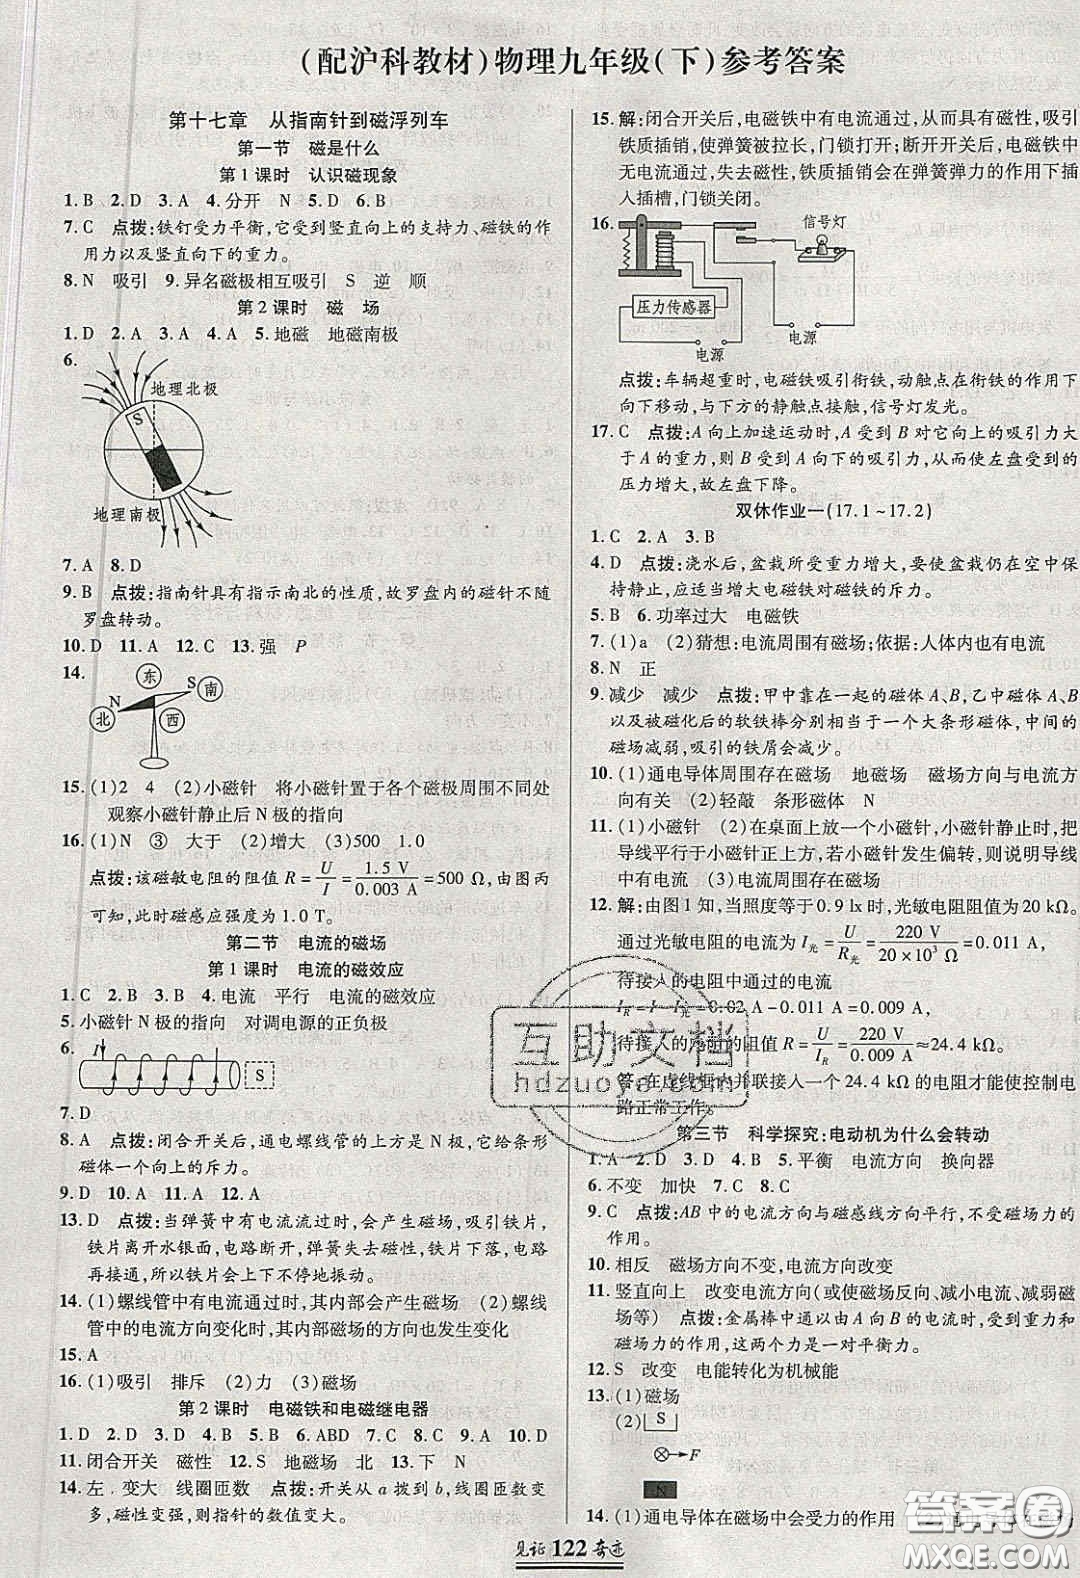 (配沪科教材)物理九年级(下)参考答案
第十七章　从指南针到磁浮列车
第一节　磁是什么
第1课时　认识磁现象
1. B　2. D　3. A　4. 分开　N　5. D　6. B
7. C　点拨:铁钉受力平衡,它受到竖直向上的支持力、磁铁的作
用力以及竖直向下的重力。
8. N　吸引　9. 异名磁极相互吸引　S　逆　顺
第2课时　磁　场
1. D　2. A　3. A　4. A　5. 地磁　地磁南极
6.
地理北极
S
地理南极
7. A　8. D
9. B　点拨:指南针具有指示南北的性质,故罗盘内的磁针不随
罗盘转动。
10. D　11. A　12. C　13. 强　P
14.
东
N
S
南
北
西
15. (1)2　4　(2)小磁针　将小磁针置于各个磁极周围不同处
观察小磁针静止后 N 极的指向
16. (1)N　③　大于　(2)增大　(3)500　1.0
点拨:该磁敏电阻的阻值 R=U/I=1.5 V/0.003 A=500 Ω,由图丙
可知,此时磁感应强度为 1.0 T。
第二节　电流的磁场
第1课时　电流的磁效应
1. C　2. B　3. B　4. 电流　平行　电流的磁效应
5. 小磁针 N 极的指向　对调电源的正负极
6.
I
S
7. D
8. A　点拨:闭合开关后,通电螺线管的上方是 N 极,它给条形
磁体一个向上的斥力。
9. D　10. A　11. A　12. A
13. D　点拨:当弹簧中有电流流过时,会产生磁场,吸引铁片,
铁片离开水银面,电路断开,弹簧失去磁性,铁片下落,电路
再接通,所以铁片会上下不停地振动。
14. (1)螺线管中有电流通过时,其内部会产生磁场　(2)螺线
管中的电流方向变化时,其内部磁场的方向也发生变化
15. A
16. (1)吸引　排斥　(2)力　(3)磁场
第2课时　电磁铁和电磁继电器
1. D　2. D　3. B　4. D　5. B　6. ABD　7. C　8. D　9. A　10. D
11. 闭合开关　磁性　12. S　地磁场　北　13. 下　N
14. 左　变大　线圈匝数　点拨:开关从 a 拨到 b,线圈匝数变
多,磁性变强,则指针的示数值变大。
15. 解:闭合开关后,电磁铁中有电流通过,从而具有磁性,吸引
铁质插销,使弹簧被拉长,门锁打开;断开开关后,电磁铁中
无电流通过,失去磁性,铁质插销在弹簧弹力的作用下插
入插槽,门锁关闭。
16.
信号灯
压力传感器
电源
电源
点拨:车辆超重时,电磁铁吸引衔铁,动触点在衔铁的作用下
向下移动,与下方的静触点接触,信号灯发光。
17. C　点拨:A 向上加速运动时,A 受到 B 对它向上的吸引力大
于 A 的重力,则 B 受到 A 向下的吸引力,从而使左盘受到的
压力增大,故左盘下沉。
双休作业一(17.1~17.2)
1. C　2. A　3. B
4. D　点拨:浇水后,盆栽所受重力增大,要使盆栽仍在空中保
持静止,应适当增大电磁铁对磁铁的斥力。
5. B　6. 功率过大　电磁铁
7. (1)a　(2)猜想:电流周围有磁场;依据:人体内也有电流
8. N　正
9. 减少　减少　点拨:甲中靠在一起的磁体 A、B,乙中磁体 A、B
以及被磁化后的软铁棒分别相当于一个大条形磁体,中间的
磁场减弱,吸引的铁屑会减少。
10. (1)通电导体周围存在磁场　地磁场　磁场方向与电流方
向有关　(2)轻敲　条形磁体　N
11. (1)小磁针　(2)在桌面上放一个小磁针,小磁针静止时,把
导线平行于小磁针正上方,若小磁针发生偏转,则说明导线
中有电流　(3)电流周围存在磁场
12. 解:由图 1 知,当照度等于 0.9 lx 时,光敏电阻阻值为 20 kΩ。
通过光敏电阻的电流为 I光=U/R光=220 V/20×10³ Ω=0.011 A,
待接入的电阻中通过的电流
I_R=I-I光=0.02 A-0.011 A=0.009 A,
待接入的电阻的阻值 R=U/I_R=220 V/0.009 A≈24.4 kΩ。
答:在虚线框内并联接入一个 24.4 kΩ 的电阻才能使控制电
路正常工作。
第三节　科学探究:电动机为什么会转动
1. A　2. D　3. D　4. B　5. 平衡　电流方向　换向器
6. 不变　加快　7. C　8. C
9. C　点拨:AB 中的电流方向与磁感线方向平行,不受磁场力的
作用。
10. 相反　磁场方向不变,电流方向改变
11. 竖直向上　改变电流方向(或使磁场反向、减小电流、减弱磁
场等)　点拨:金属棒中通以由 A 向 B 的电流时,受到重力和
磁场力的作用,这两个力是一对平衡力。
12. S　改变　电能转化为机械能
13. (1)磁场
(2)
S
F
N
14. (1)通电导体在磁场中会受力的作用　(2)
见证 122 奇迹
互助文档
hdzuoye.com
答案圈
MXQE.COM